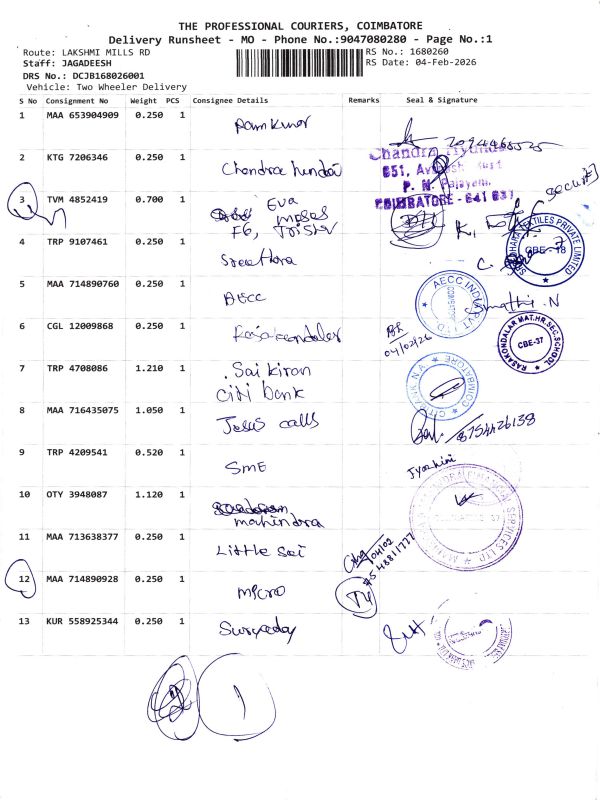 THE PROFESSIONAL COURIERS, COIMBATORE
Delivery Runsheet - MO - Phone No.:9047080280 - Page No.:1
Route: LAKSHMI MILLS RD
RS No.: 1680260
Staff: JAGADEESH
RS Date: 04-Feb-2026
DRS No.: DCJB168026001
Vehicle: Two Wheeler Delivery
S No Consignment No Weight PCS Consignee Details Remarks Seal & Signature
1 MAA 653904909 0.250 1 Ramkumar
2 KTG 7206346 0.250 1 Chandra
Chandra
651,
P. N.
COIMBATORE - 641 037
Security
3 TVM 4852419 0.700 1 Eva
moses
F6,
4 TRP 9107461 0.250 1
TEXTILES PRIVATE LIMITED
CBE - 18
5 MAA 714890760 0.250 1 AECC
AECC INDIA PVT LTD
6 CGL 12009868 0.250 1
04/02/26
RAJAKONDALAR MAT.HR.SEC.SCHOOL
CBE-37
7 TRP 4708086 1.210 1 Sai kiran
Citi bank
CITIBANK N.A COIMBATORE
8 MAA 716435075 1.050 1 Jesus calls
8754426138
9 TRP 4209541 0.520 1 SME
10 OTY 3948087 1.120 1
mahindra
SERVICES LTD
11 MAA 713638377 0.250 1 Little Sai
12 MAA 714890928 0.250 1 micro
13 KUR 558925344 0.250 1 Suryoday
1